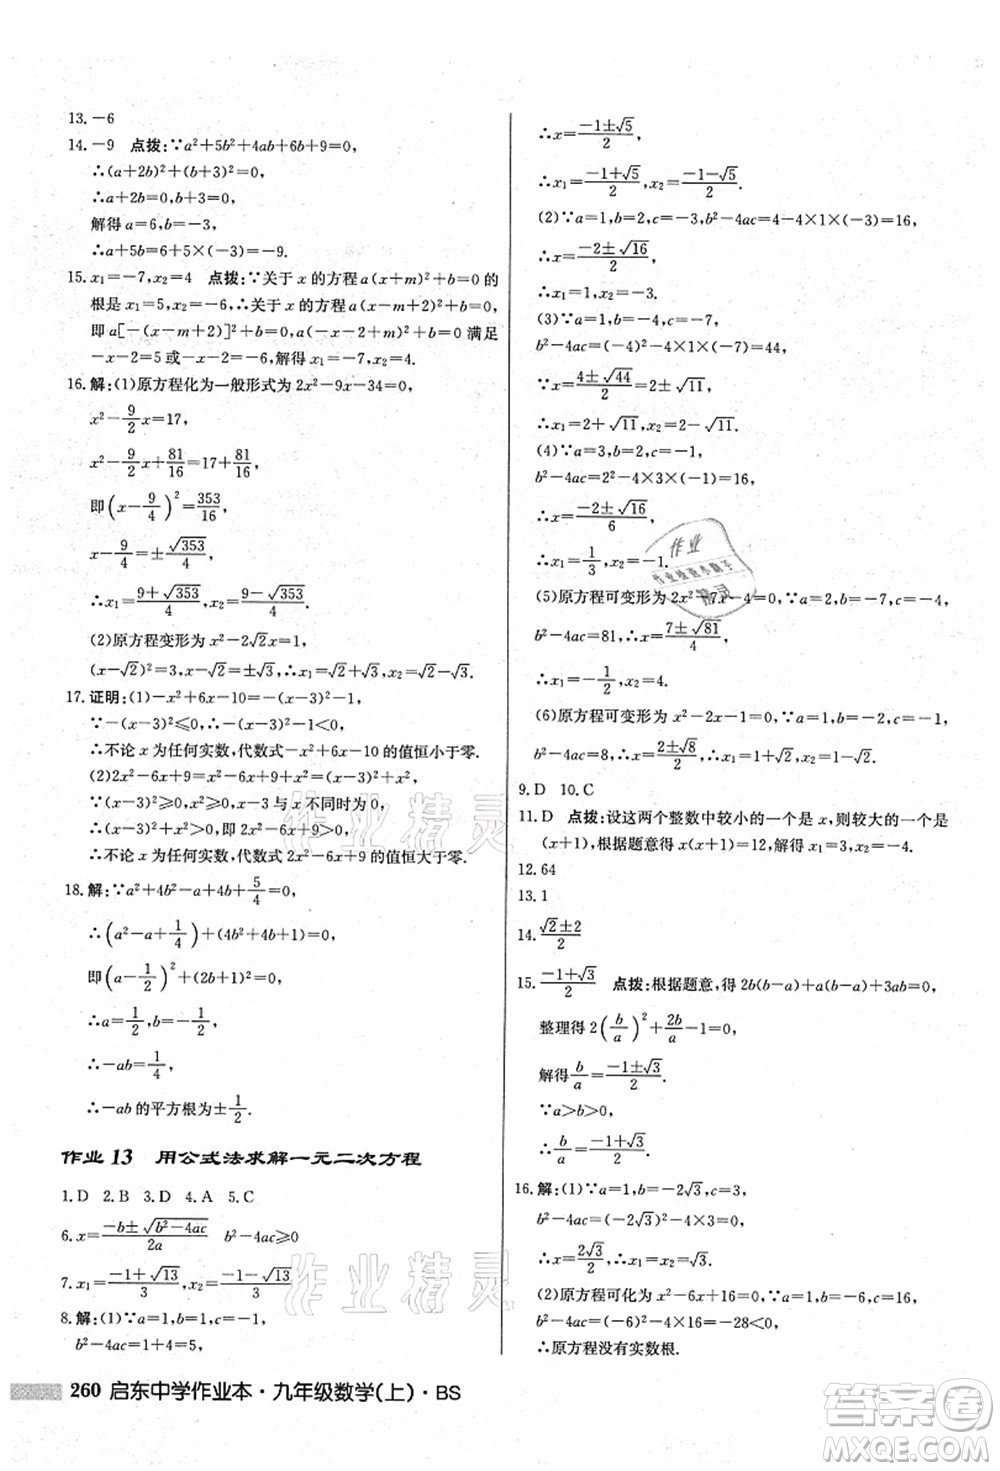 13.-6
14.-9 点拨:∵a²+5b²+4ab+6b+9=0,
∴(a+2b)²+(b+3)²=0,
∴a+2b=0,b+3=0,
解得a=6,b=-3,
∴a+5b=6+5×(-3)=-9.
15.x₁=-7,x₂=4 点拨:∵关于x的方程a(x+m)²+b=0的
根是x₁=5,x₂=-6,∴关于x的方程a(x-m+2)²+b=0,
即a[-(x-m+2)]²+b=0,a(-x-2+m)²+b=0满足
-x-2=5或-x-2=-6,解得x₁=-7,x₂=4.
16.解:(1)原方程化为一般形式为2x²-9x-34=0,
x²-9/2x=17,
x²-9/2x+81/16=17+81/16,
即(x-9/4)²=353/16,
x-9/4=±√353/4,
∴x₁=(9+√353)/4,x₂=(9-√353)/4.
(2)原方程变形为x²-2√2x=1,
(x-√2)²=3,x-√2=±√3,∴x₁=√2+√3,x₂=√2-√3.
17.证明:(1)-x²+6x-10=-(x-3)²-1,
∵-(x-3)²≤0,∴-(x-3)²-1<0,
∴不论x为任何实数,代数式-x²+6x-10的值恒小于零.
(2)2x²-6x+9=(x-3)²+x²,
∵(x-3)²≥0,x²≥0且(x-3)和x不同时为0,
∴(x-3)²+x²>0,即2x²-6x+9>0,
∴不论x为任何实数,代式2x²-6x+9的值恒大于零.
18.解:∵a²+4b²-a+4b+5/4=0,
∴(a²-a+1/4)+(4b²+4b+1)=0,
即(a-1/2)²+(2b+1)²=0,
∴a=1/2,b=-1/2,
∴-ab=1/4,
∴-ab的平方根为±1/2.
作业13 用公式法求解一元二次方程
1.D 2.B 3.D 4.A 5.C
6.x=(-b±√(b²-4ac))/2a b²-4ac≥0
7.x₁=(-1+√13)/3,x₂=(-1-√13)/3
8.解:(1)∵a=1,b=1,c=-1,
b²-4ac=1+4=5,
260 启东中学作业本·九年级数学(上)·BS
∴x=(-1±√5)/2,
∴x₁=(-1+√5)/2,x₂=(-1-√5)/2.
(2)∵a=1,b=0,c=-3,b²-4ac=0-4×1×(-3)=16,
∴x=0±√16/2,
∴x₁=1,x₂=-3.
(3)∵a=1,b=-4,c=-7,
b²-4ac=(-4)²-4×1×(-7)=44,
∵x=(4±√44)/2=2±√11,
∴x₁=2+√11,x₂=2-√11.
(4)∵a=3,b=2,c=-1,
b²-4ac=2²-4×3×(-1)=16,
∴x=(-2±√16)/6,
∴x₁=1/3,x₂=-1.
(5)原方程可变形为2x²-7x-4=0,∵a=2,b=-7,c=-4,
b²-4ac=81,∴x=(7±√81)/4,
∴x₁=-1/2,x₂=4.
(6)原方程可变形为x²-2x-1=0,∵a=1,b=-2,c=-1,
b²-4ac=8,∴x=(2±√8)/2,∴x₁=1+√2,x₂=1-√2.
9.D 10.C
11.D 点拨:设这两个整数中较小的一个是x,则较大的是
(x+1),根据题意得x(x+1)=12,解得x₁=3,x₂=-4.
12.64
13.1
14.(√2±2)/2
15.(-1+√3)/2 点拨:根据题意,得2b(b-a)+a(b-a)+3ab=0,
整理得2(b/a)²+2b/a-1=0,
解得b/a=(-1±√3)/2,
∵a>b>0,
∴b/a=(-1+√3)/2.
16.解:(1)∵a=1,b=-2√3,c=3,
b²-4ac=(-2√3)²-4×1×3=0,
∴x=2√3/2,∴x₁=x₂=√3.
(2)原方程可化为x²-6x+16=0,
b²-4ac=(-6)²-4×1×16=-28<0,
∴原方程没有实数根.
作业精灵
作业精灵
作业
精灵
答案圈
MXQE.COM